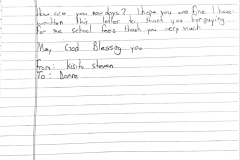 How are you now days? I hope you are fine I have
written this letter to thank you for paying
for me school fees thank you very much
May God Blessing you
From: Kisito steven
To: Donne